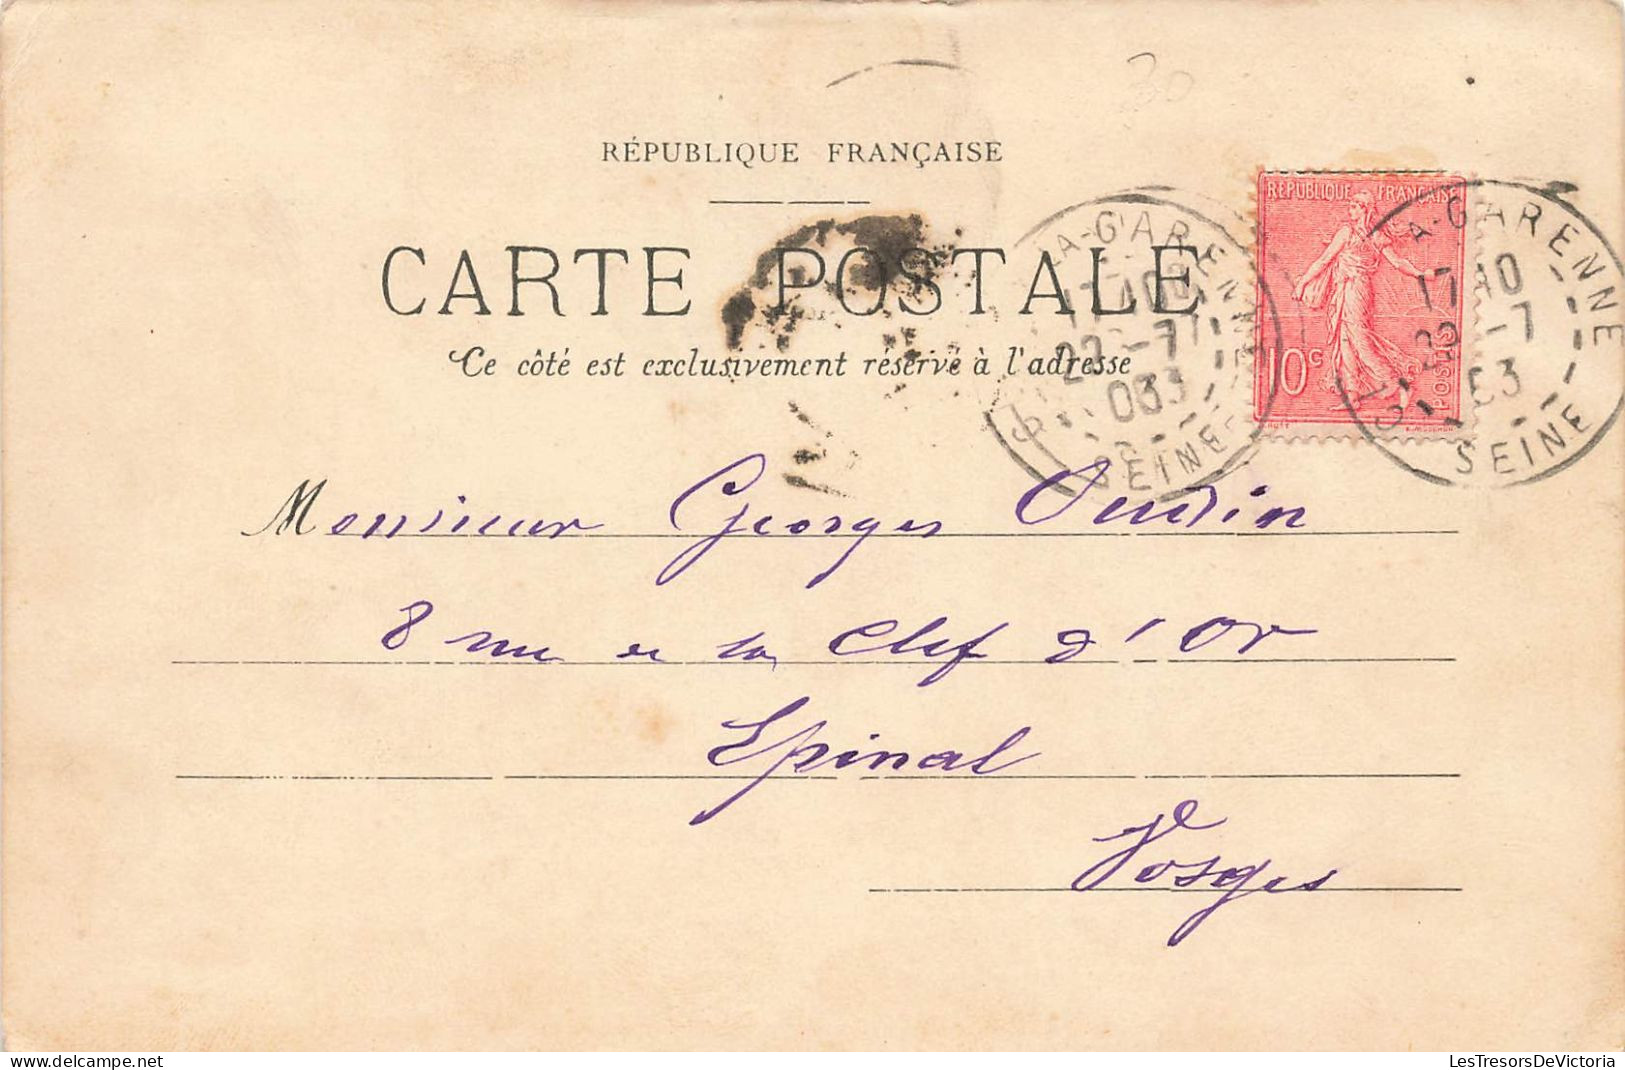 30
RÉPUBLIQUE FRANÇAISE
CARTE POSTALE
Ce côté est exclusivement réservé à l'adresse
RÉPUBLIQUE FRANÇAISE
10c
POSTES
LA-GARENNE
17 40
22 -7
03
SEINE
LA-GARENNE
17 40
22 -7
03
SEINE
Monsieur Georges Oudin
8 rue de la Clef d'Or
Epinal
Vosges
LesTresorsDeVictoria